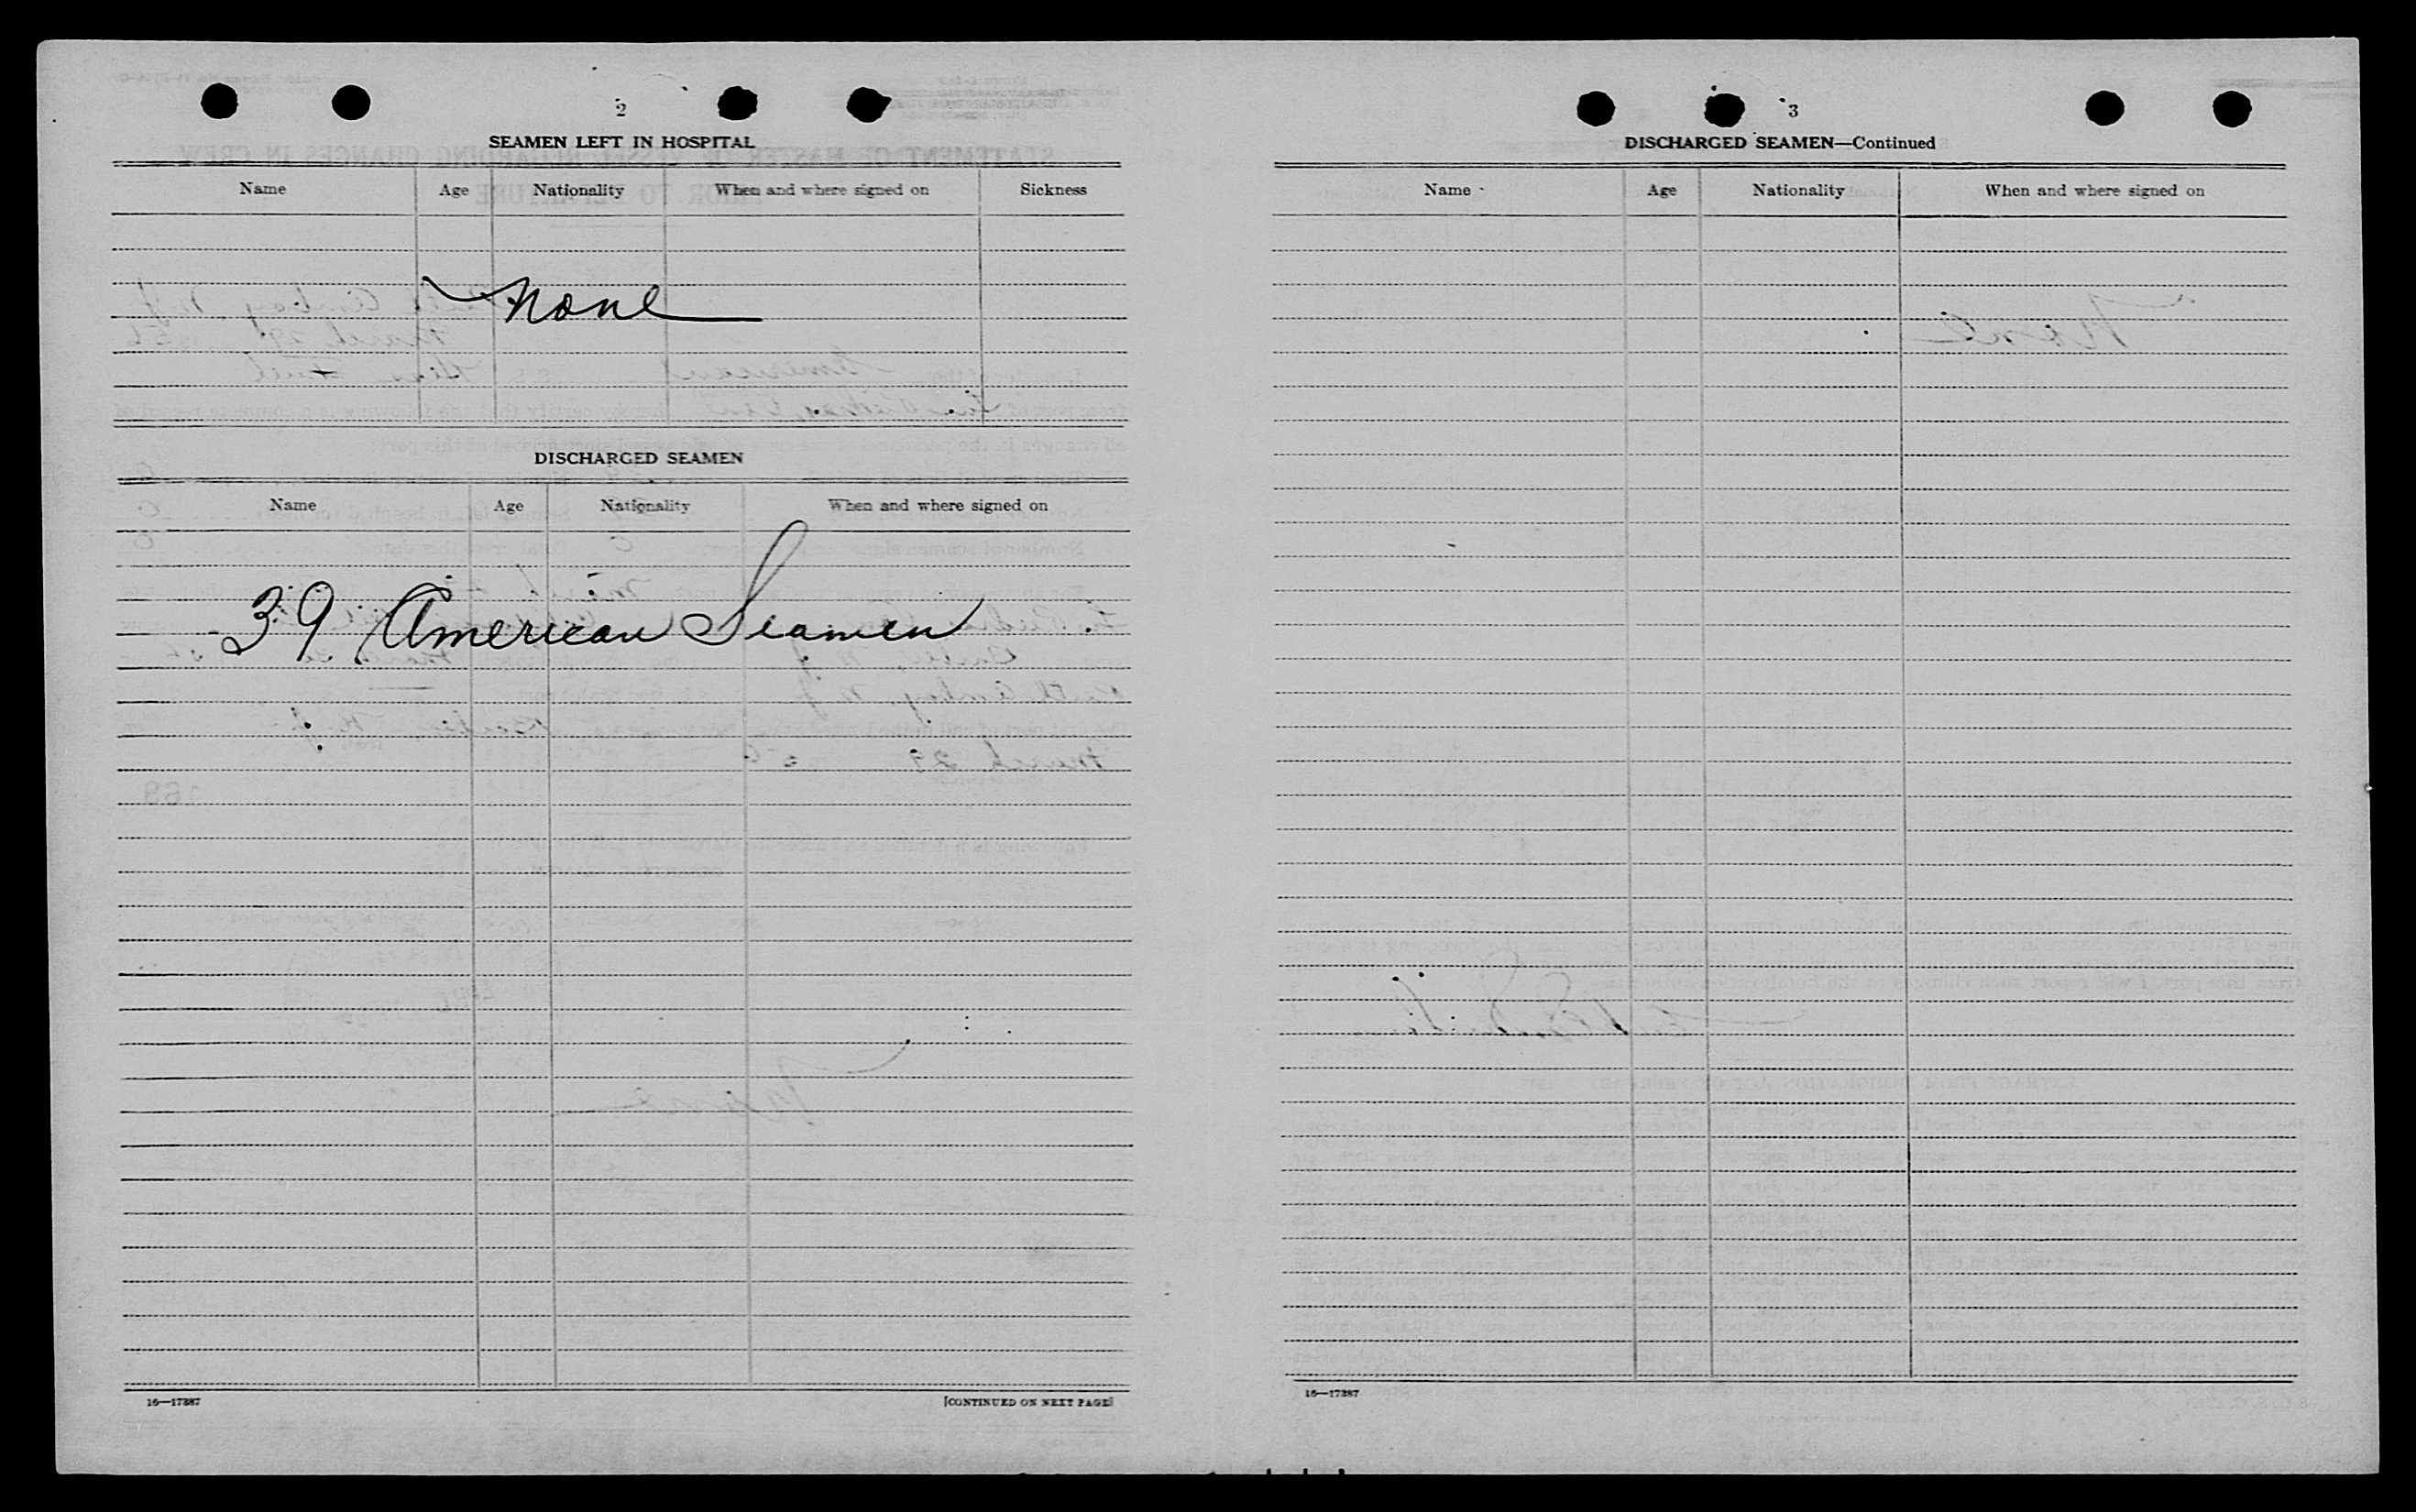 2
SEAMEN LEFT IN HOSPITAL
Name Age Nationality When and where signed on Sickness
None
DISCHARGED SEAMEN
Name Age Nationality When and where signed on
39 American Seamen
16—17387 [CONTINUED ON NEXT PAGE]
3
DISCHARGED SEAMEN—Continued
Name Age Nationality When and where signed on
16—17387